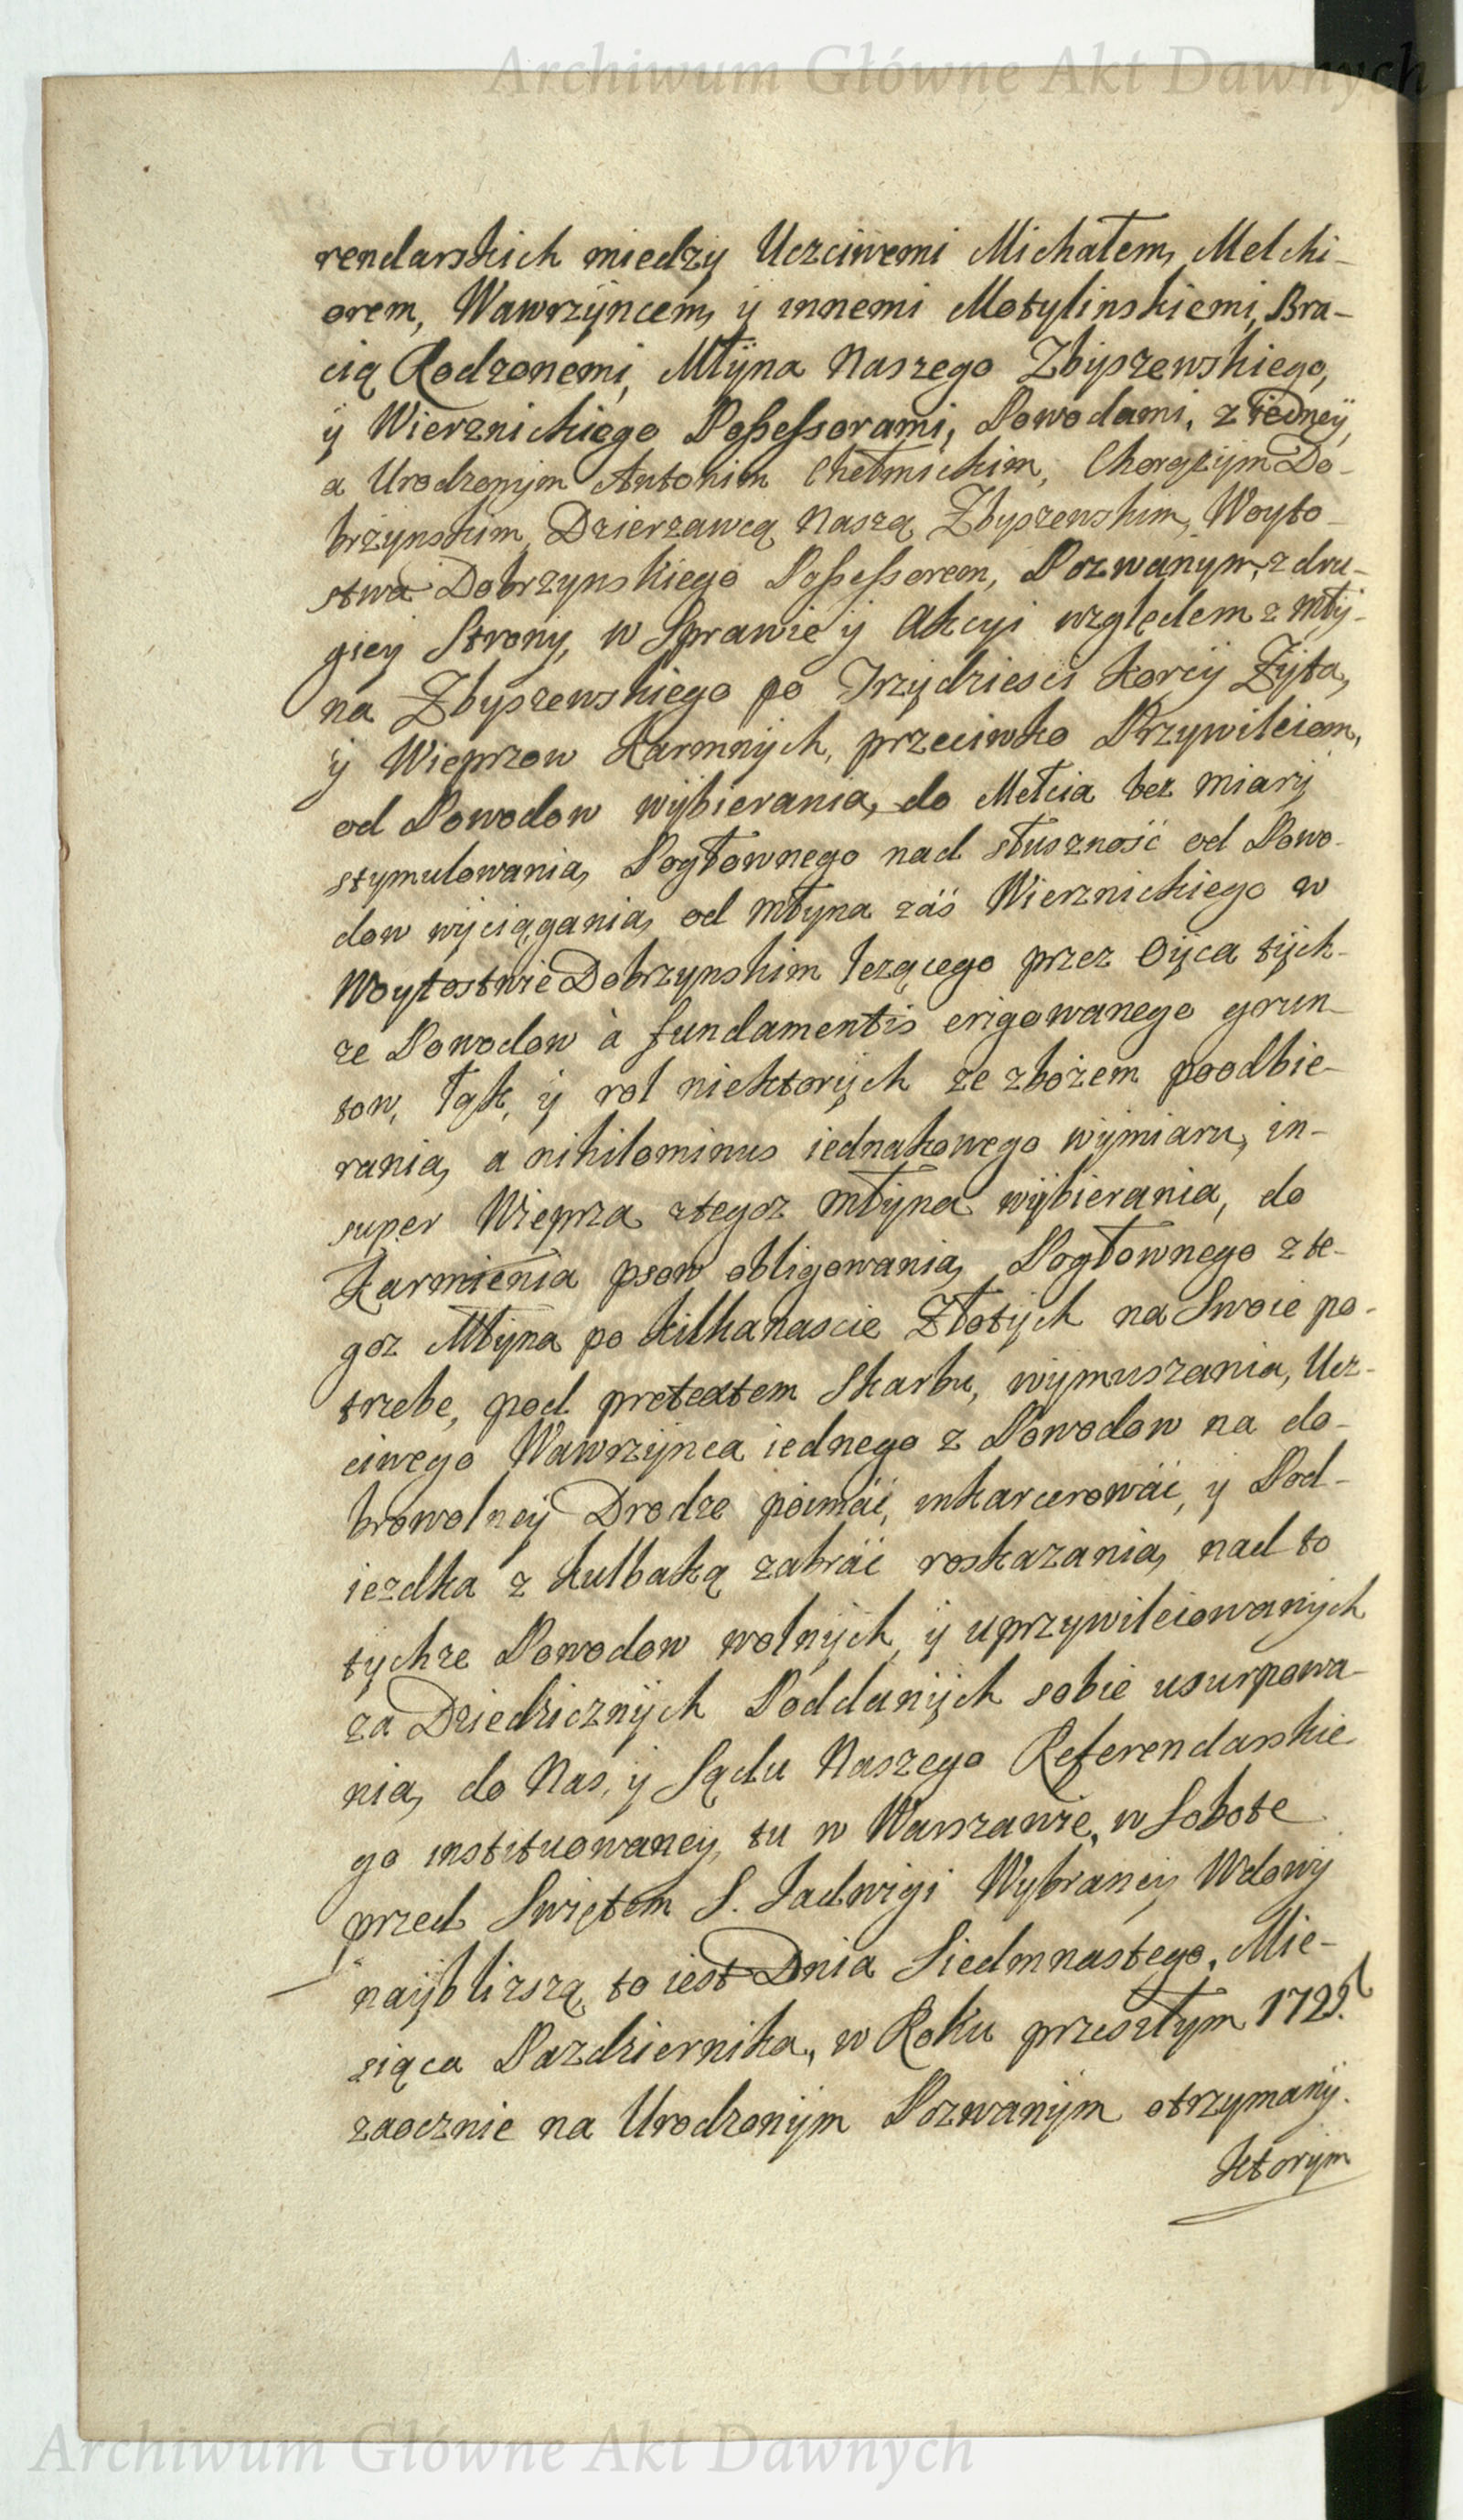 Archiwum Główne Akt Dawnych
rendarskich miedzy Uczciwemi Michałem, Melchi-
orem, Wawrzyncem, y innemi Motylinskiemi, Bra-
cią Rodzonemi, Młyna Naszego Zbyszewskiego,
y Wiernickiego Possessorami, Powodami, z iedney,
a Urodzonym Antonim Chełmickim, Chorązym Do-
brzynskim, Dzierzawcą Naszą Zbyszewskim, Woyto-
stwa Dobrzynskiego Possessorem, Pozwanym, z dru-
giey Strony, w Sprawie y Akcyi względem z Mły-
na Zbyszewskiego po Trzydziesci Korcy Zyta,
y Wieprzow Karmnych, przeciwko Przywileiom,
od Powodow wybierania, do Mełcia bez miary
stymulowania, Pogłownego nad słuszność od Powo-
dow wyciągania, od Młyna záś Wierznickiego w
Woytostwie Dobrzynskim lezącego przez Oyca tych-
ze Powodow à fundamentis erigowanego grun-
tow, Łąk, y rol niektorych ze zbożem poodbie-
rania, a nihilominus iednakowego wymiaru, in-
super Wieprza ztegoz Młyna wybierania, do
Karmienia psow obligowania, Pogłownego z te-
goz Młyna po kilkanascie Złotych na Swoie po-
trzebe, pod pretextem Skarbu, wymuszania, Ucz-
ciwego Wawrzynca iednego z Powodow na do-
browolney Drodze poimáć, inkarcerowáć, y Pod-
iezdka z Kulbaką zabráć roskazania, nad to
tychze Powodow wolnych, y uprzywileiowanych
za Dziedzicznych Poddanych sobie usurpowa-
nia, do Nas, y Sądu Naszego Referendarskie
go instituowaney, tu w Warszawie, w Sobote
przed Swiętem S. Jadwigi Wybraney Wdowy
nayblizszą, to iest Dnia Siedmnastego, Mie-
siąca Pazdziernika, w Roku przeszłym
zaocznie na Urodzonym Pozwanym otrzymany.
ktorym
Archiwum Główne Akt Dawnych